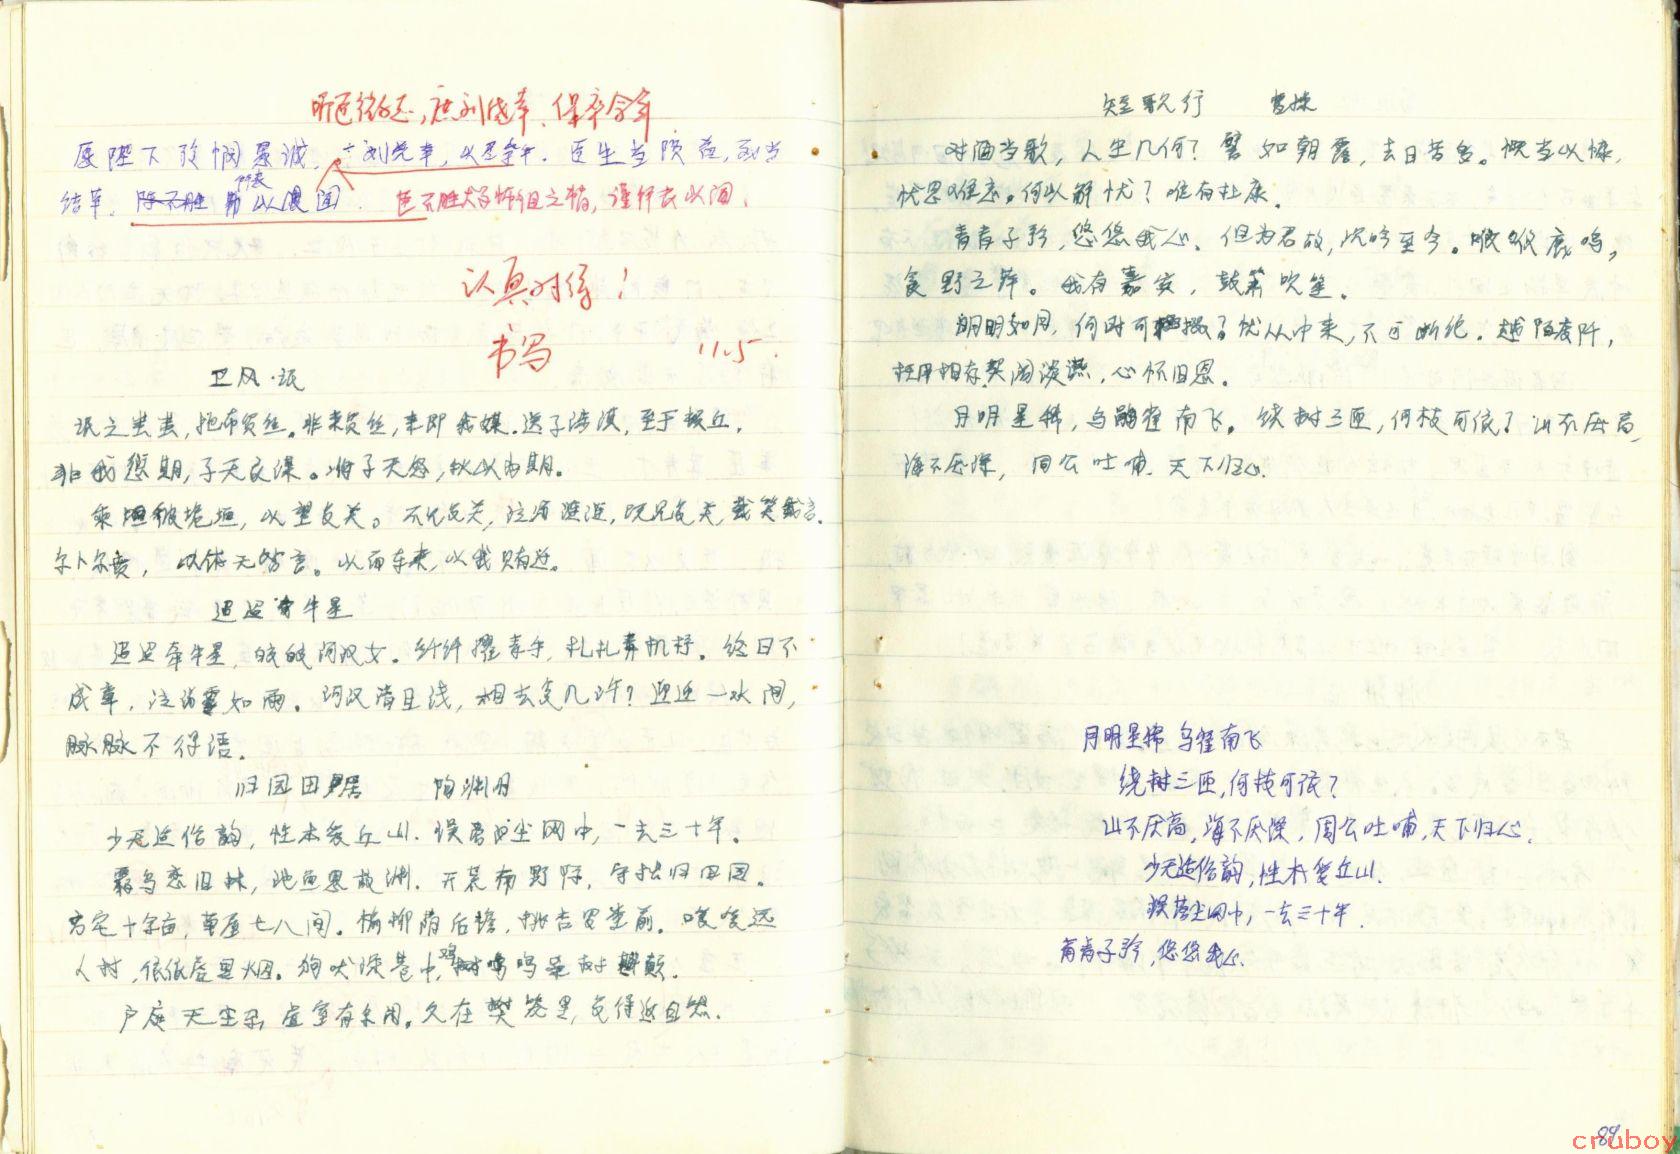 听臣微志，庶刘侥幸、保卒余年
愿陛下矜悯愚诚，刘侥幸，以尽余年. 臣生当陨首，死当
结草。陈不胜 郭 拜表 以谩闻. 臣不胜犬马怖俱之情，谨拜表以闻.
认真对待！
书写 11.5.
卫风·氓
氓之蚩蚩，抱布贸丝。非来贸丝，来即我媒. 送子涉淇，至于顿丘.
非我愆期，子无良谋。将子无怒，秋以为期。
乘彼垝垣，以望复关。不见复关，泣涕涟涟，既见复关，载笑载言.
尔卜尔筮，以体无咎言。以而车来，以我贿迁。
迢迢牵牛星
迢迢牵牛星，皎皎河汉女. 纤纤擢素手，札札弄机杼。终日不
成章，泣涕零如雨。河汉清且浅，相去复几许？迎迎一水间，
脉脉不得语.
归园田居 陶渊明
少无适俗韵，性本爱丘山. 误落尘网中，一去三十年。
羁鸟恋旧林，池鱼思故渊. 开荒南野际，守拙归田园。
方宅十余亩，草屋七八间。榆柳荫后檐，桃李罗堂前。暧暧远
人村，依依墟里烟。狗吠深巷中，鸡鸣桑树颠.
户庭无尘杂，虚室有余闲。久在樊笼里，复得返自然.
短歌行 曹操
对酒当歌，人生几何？譬如朝露，去日苦多。慨当以慷，
忧思难忘。何以解忧？唯有杜康.
青青子衿，悠悠我心. 但为君故，沉吟至今。呦呦鹿鸣，
食野之苹。我有嘉宾，鼓瑟吹笙.
明明如月，何时可掇？忧从中来，不可断绝. 越陌度阡，
枉用相存. 契阔谈䜩，心怀旧恩。
月明星稀，乌鹊南飞。绕树三匝，何枝可依？山不厌高，
海不厌深，周公吐哺. 天下归心.
月明星稀 乌鹊南飞
绕树三匝，何枝可依？
山不厌高，海不厌深，周公吐哺，天下归心.
少无适俗韵，性本爱丘山.
误落尘网中，一去三十年.
青青子衿，悠悠我心.
89
cruboy